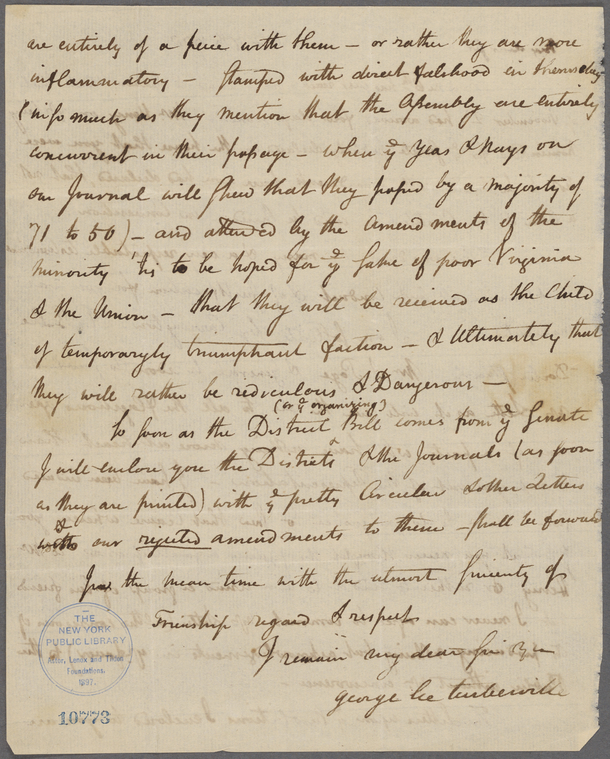 are entirely of a peice with them — or rather they are more
inflammatory — stamped with direct falshood in themselves
(insomuch as they mention that the Assembly are entirely
concurrent in their passage — when ye Yeas & Nays on
our Journal will shew that they passed by a majority of
71 to 50) — and attended by the amendments of the
minority 'tis to be hoped for ye sake of poor Virginia
& the Union — that they will be received as the Child
of temporaryly triumphant faction — & Ultimately that
they will rather be rediculous & Dangerous —
(or ye organizing)
So soon as the District Bill comes from ye Senate
I will enclose you the Districts & the Journals (as soon
as they are printed) with ye pretty Circular & other Letters
&
with our rejected amendments to them — shall be forwarded
In the mean time with the utmost sincerity of
Frienship regard & respect
I remain my dear Sir Yrs
George Lee Turberville
THE
NEW YORK
PUBLIC LIBRARY
Astor, Lenox and Tilden
Foundations.
1897.
10773